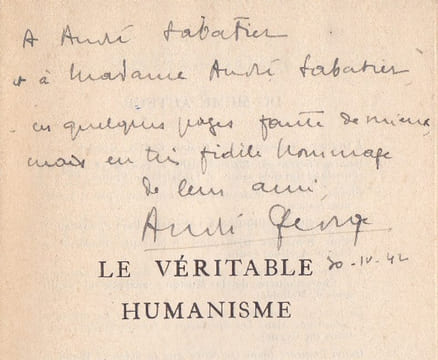 A André Sabatier
+ à Madame André Sabatier
ces quelques pages faute de mieux,
mais en très fidèle hommage
de leur ami,
André George
LE VÉRITABLE
30-IV-42
HUMANISME